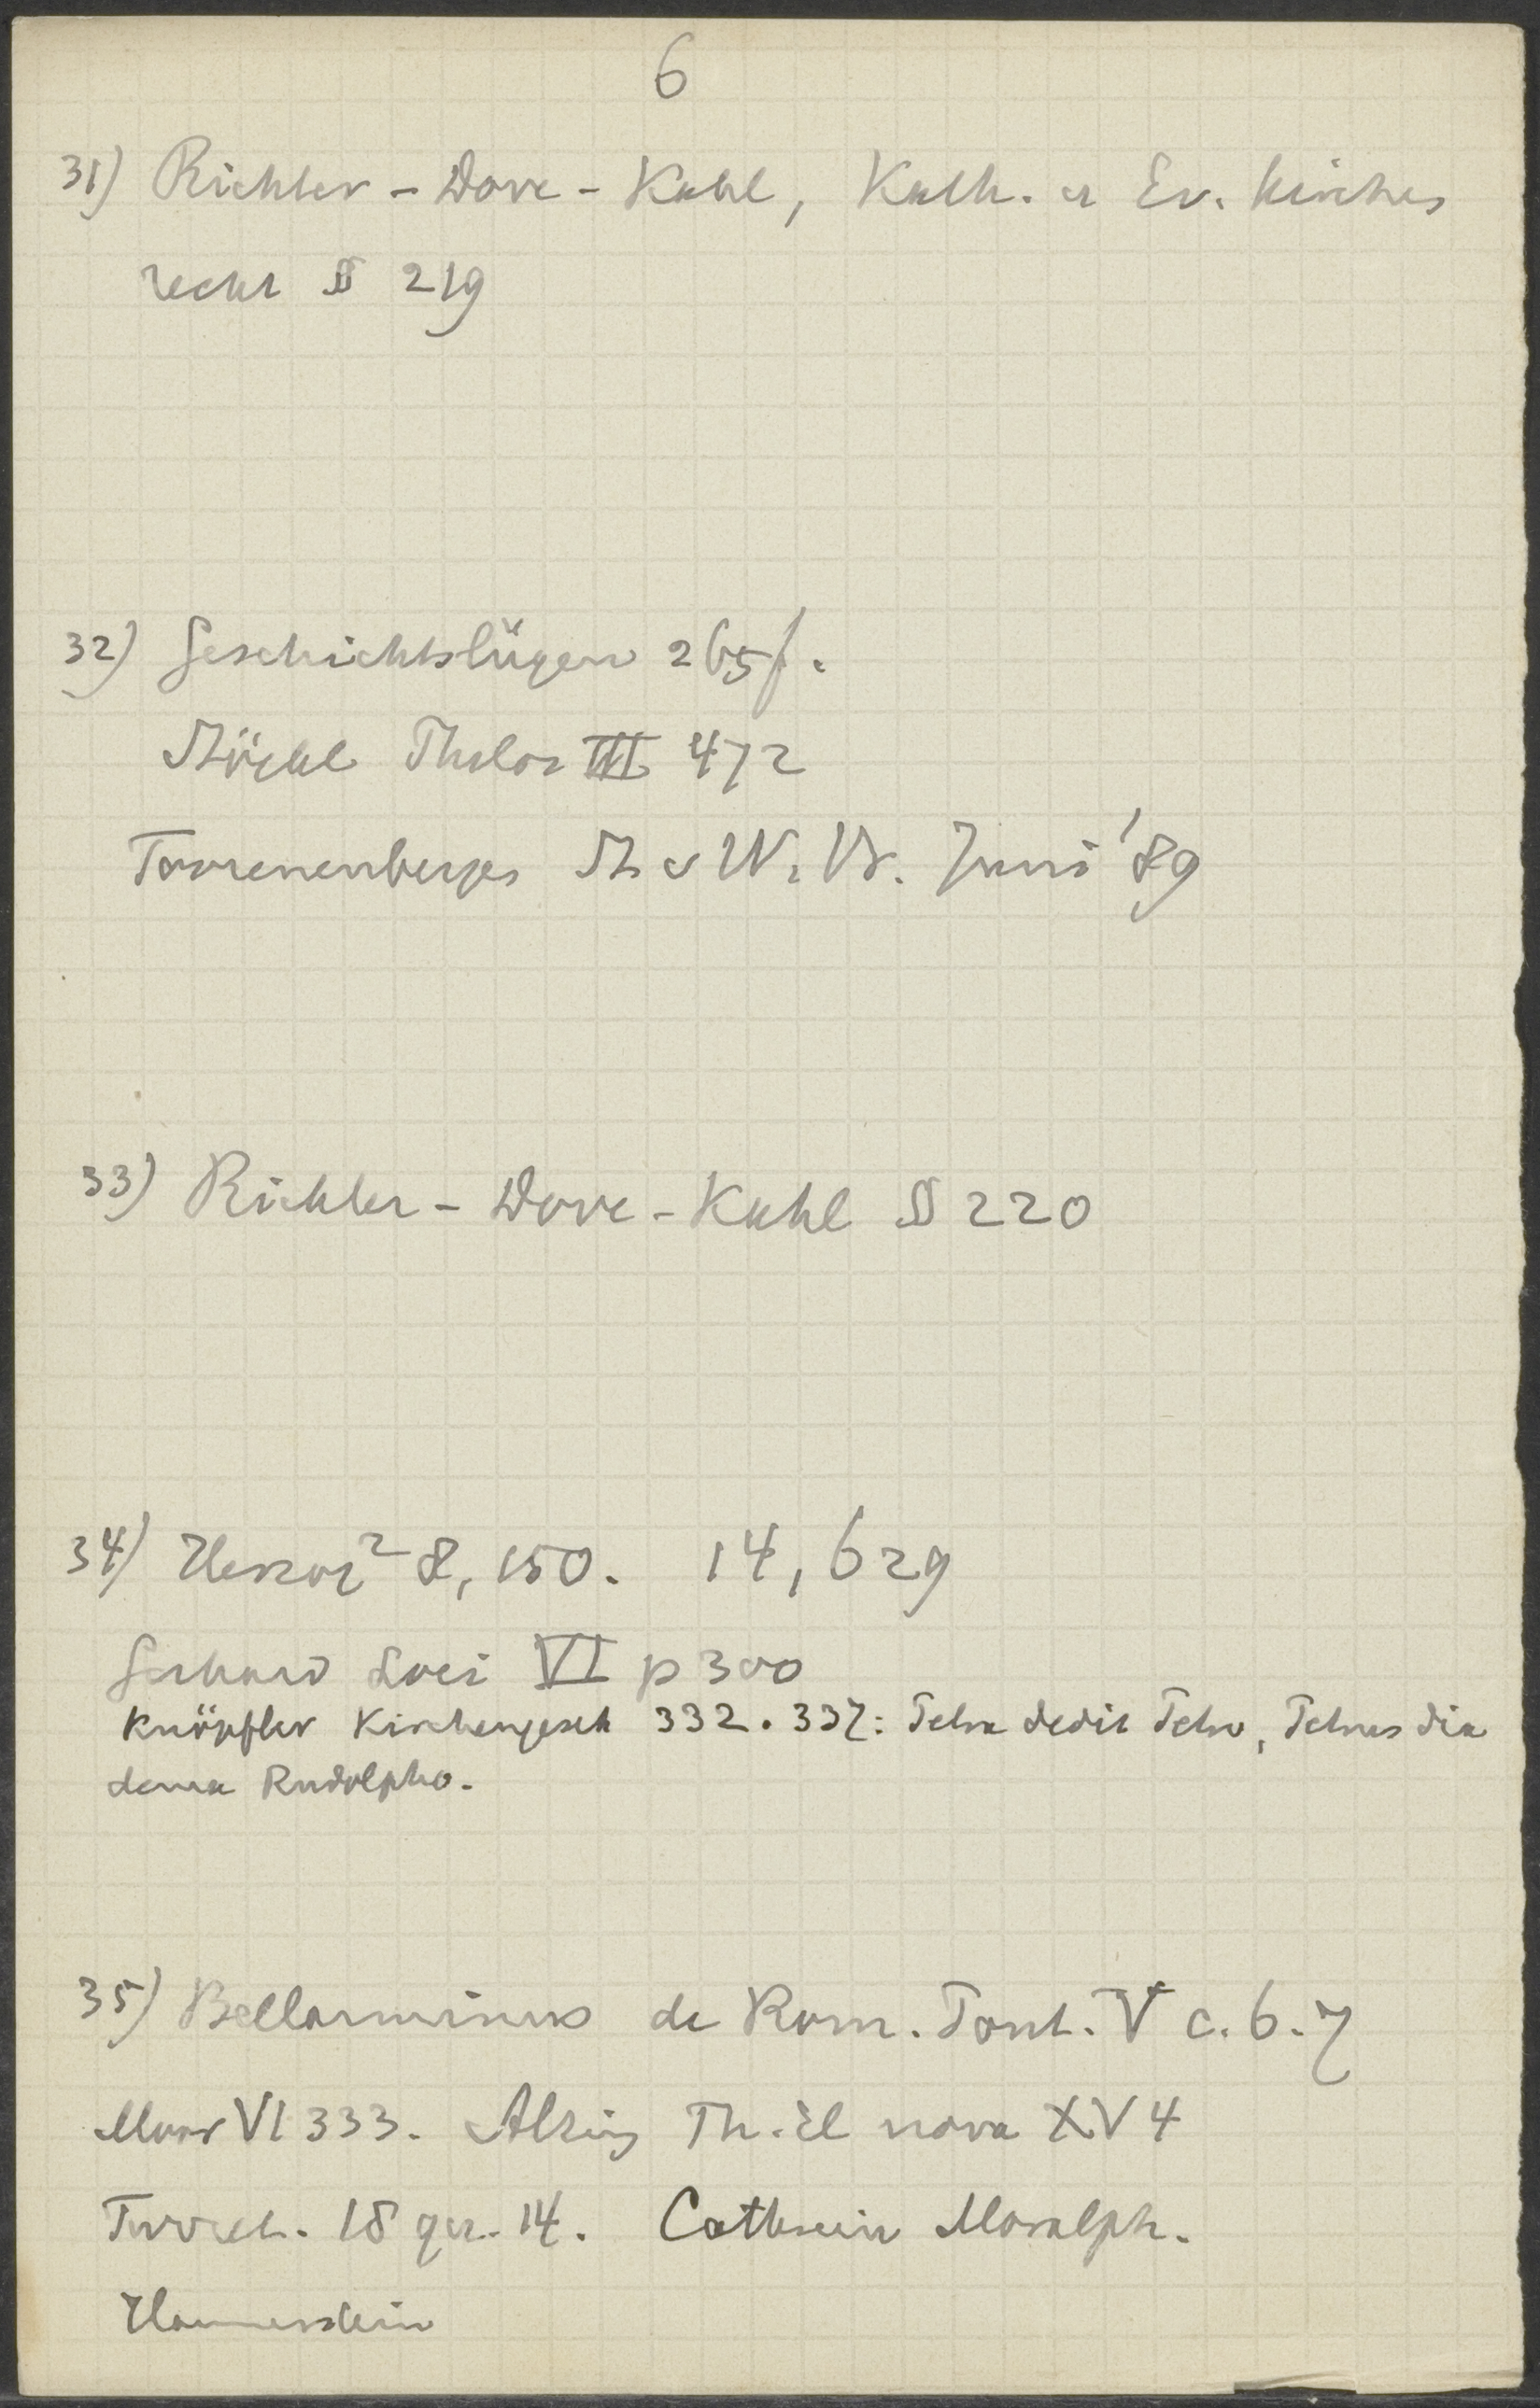 6
31) Richter - Dove - Kahl, Kath. u Ev. Kirchen
recht § 219
32) Geschichtslügen 265f.
Stöckl Philos III 472
St v W. Br. Juni '89
33) Richter - Dove - Kahl § 220
34) Herzog² 8, 150. 14, 629
Gerhard Loci VI p 300
Knöpfler Kirchengesch 332. 337: Petra dedit Petro, Petrus dia
dema Rudolpho.
35) Bellarminus de Rom. Pont. V c. 6. 7
VI 333. Th. El nova XV 4
Turret. 18 qu. 14. Cathrein Moralph.
Hammerstein